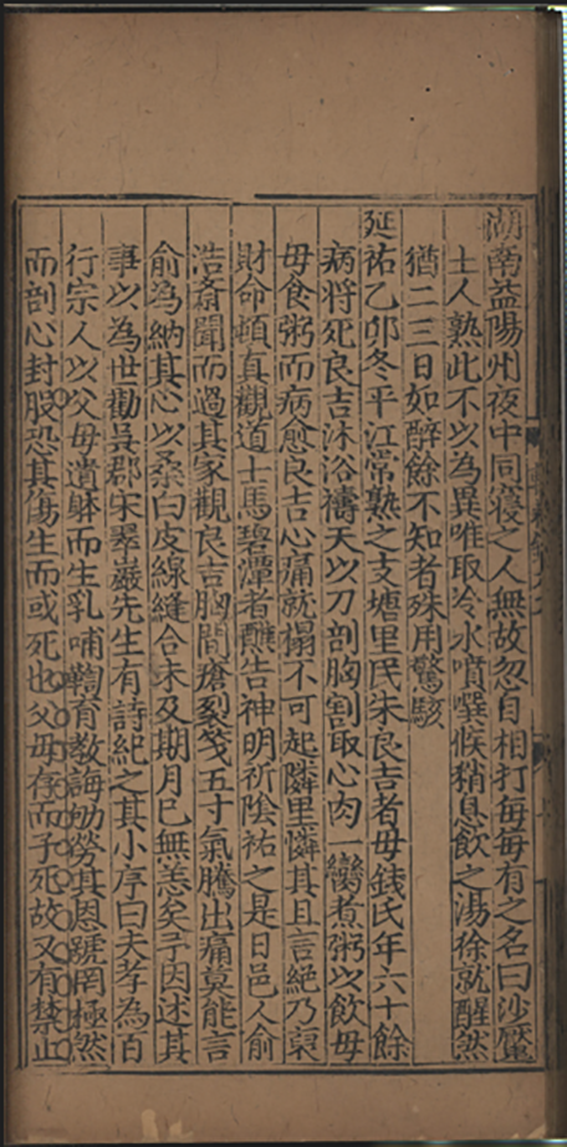 湖南益陽州夜中同寢之人無故忽自相打每每有之名曰沙魘
土人熟此不以為異唯取冷水噴噀候稍息飲之湯徐就醒然
猶二三日如醉餘不知者殊用驚駭
延祐乙卯冬平江常熟之支塘里民朱良吉者母錢氏年六十餘
病将死良吉沐浴禱天以刀剖胸割取心肉一臠煮粥以飲母
母食粥而病愈良吉心痛就榻不可起隣里憐其且言絕乃裒
財命頓真觀道士馬碧潭者醮告神明祈陰祐之是日邑人俞
浩斋聞而過其家觀良吉胸間瘡裂几五寸氣騰出痛莫能言
俞為納其心以桑白皮線縫合未及期月已無恙矣予因述其
事以為世勸吳郡宋翠巖先生有詩紀之其小序曰夫孝為百
行宗人以父母遺躰而生乳哺鞠育教誨劬勞其恩號罔極然
而剖心封股恐其傷生而或死也父母存而子死故又有禁止